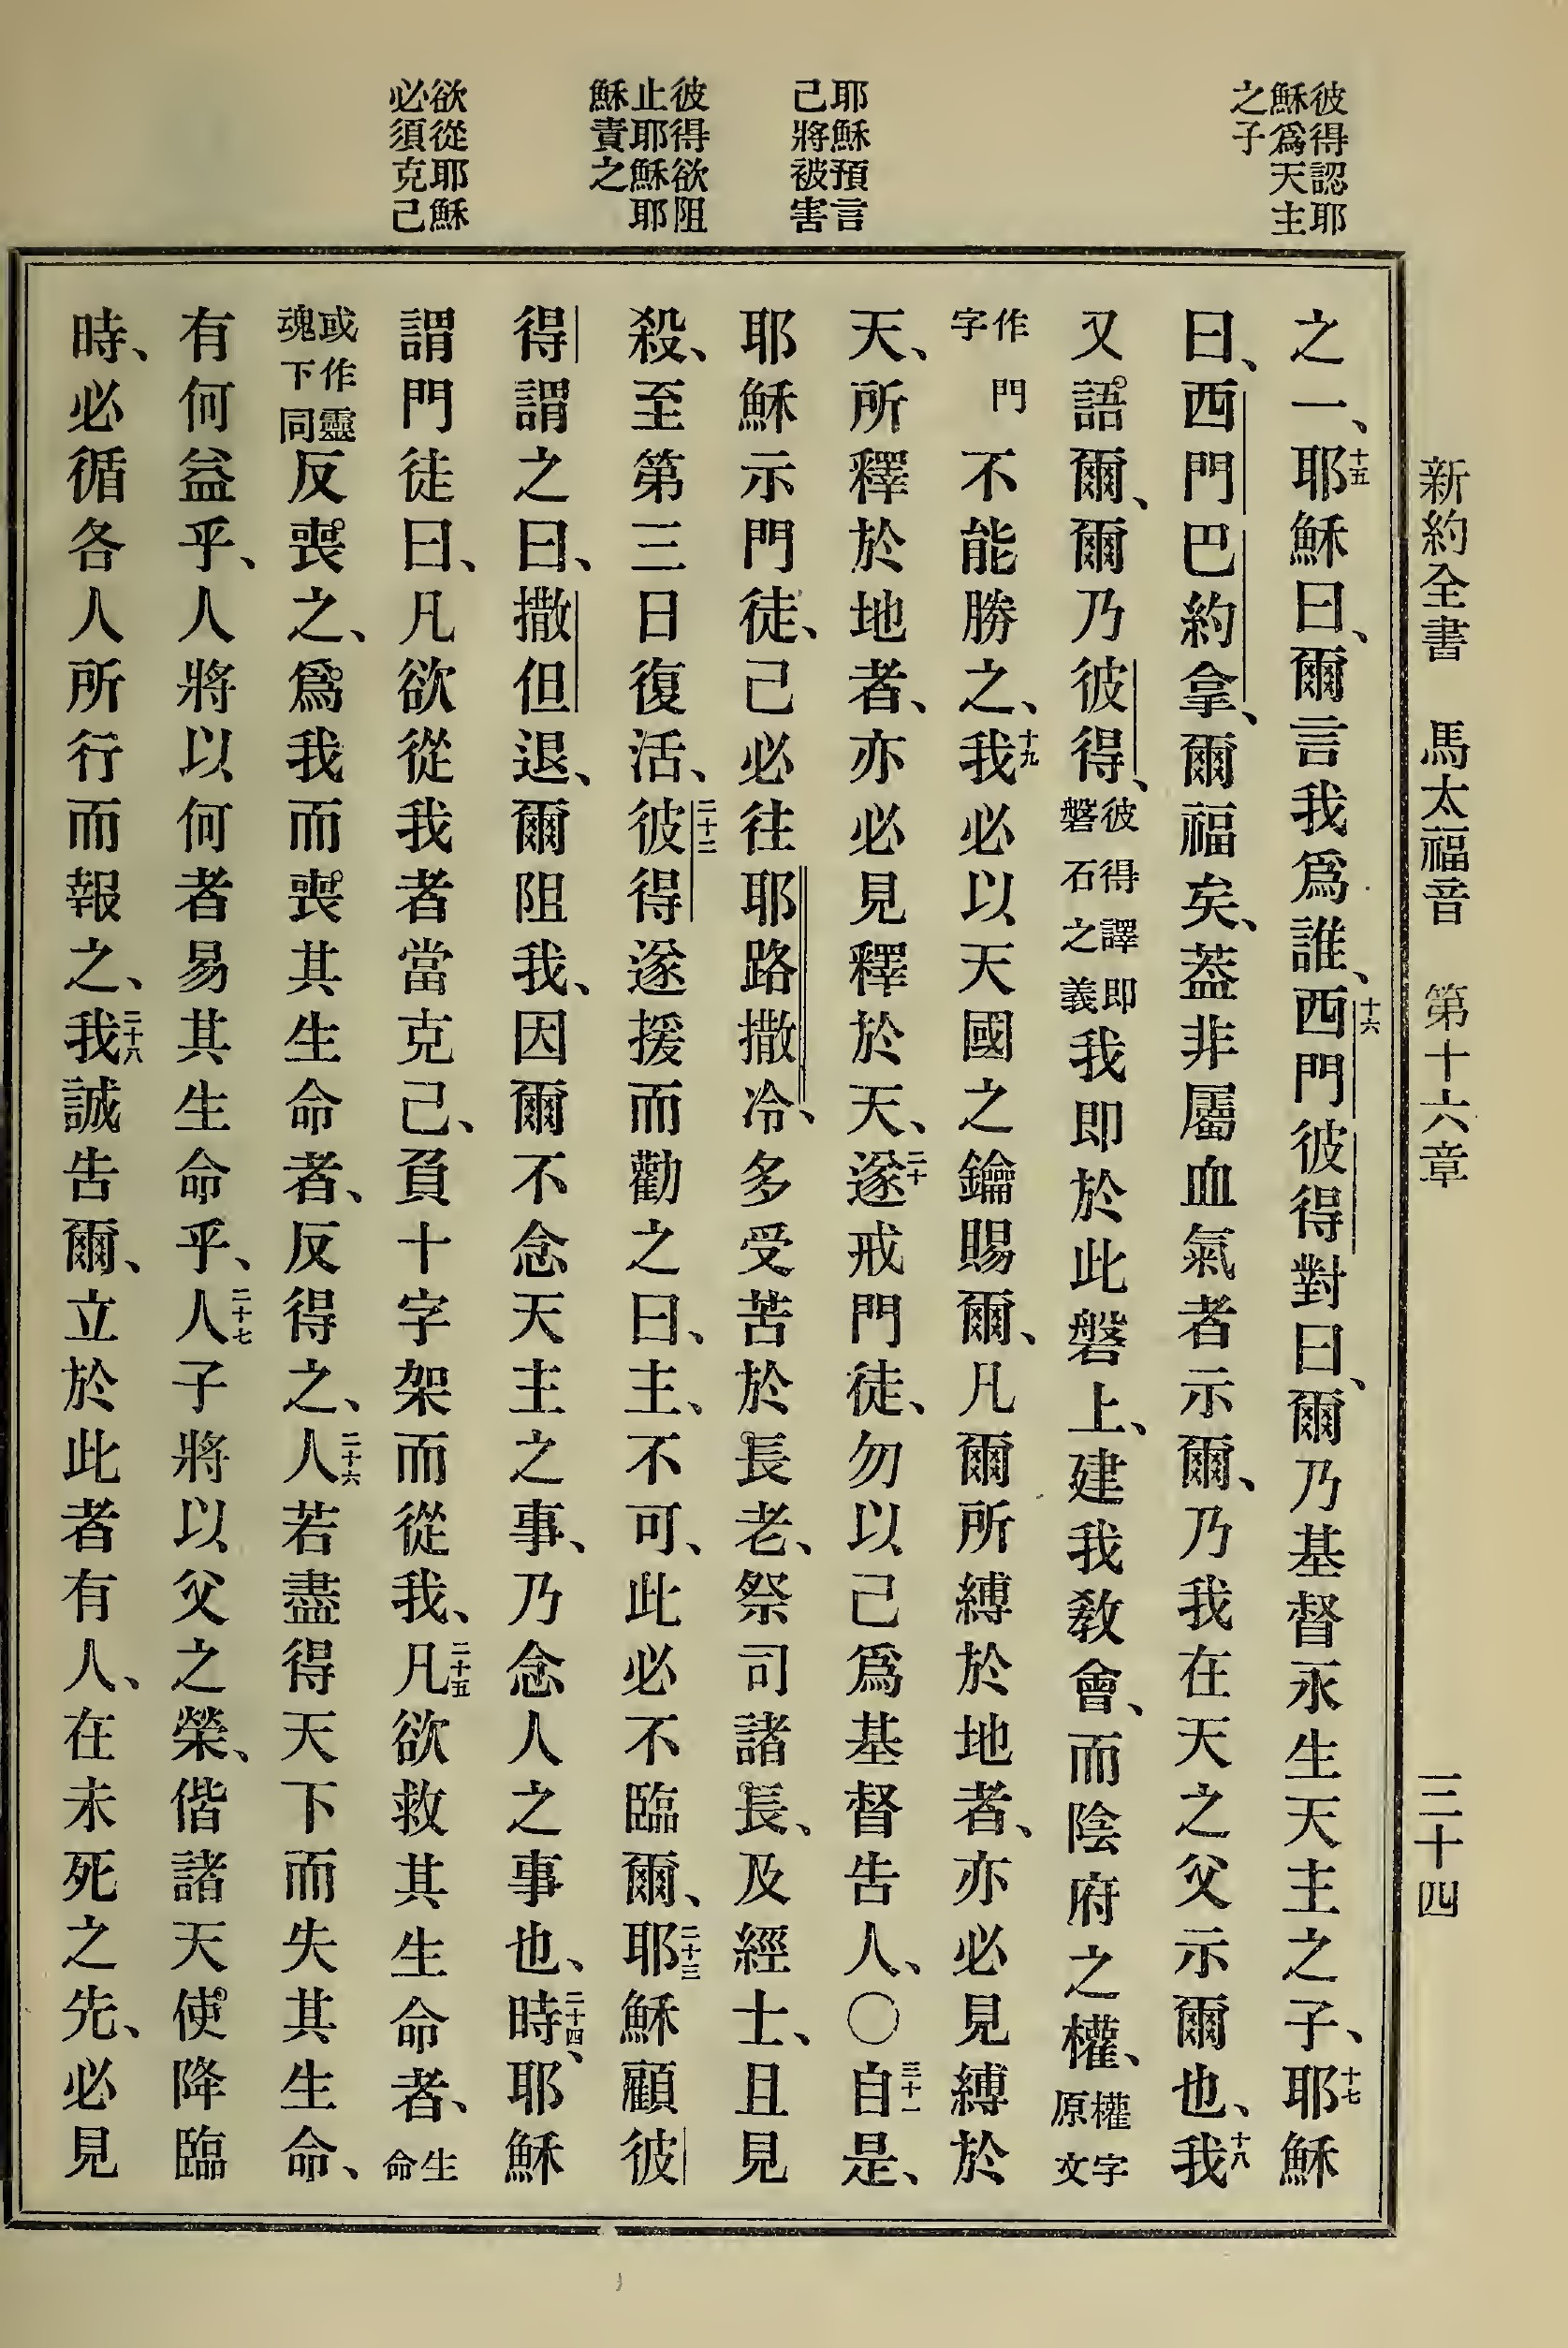 新約全書 馬太福音 第十六章 三十四
彼得認耶
穌爲天主
之子
耶穌預言
己將被害
彼得欲阻
止耶穌耶
穌責之
欲從耶穌
必須克己
之一、十五耶穌曰、爾言我爲誰、十六西門彼得對曰、爾乃基督永生天主之子、十七耶穌
曰、西門巴約拿、爾福矣、葢非屬血氣者示爾、乃我在天之父示爾也、十八我
又語爾、爾乃彼得、彼得譯卽磐石之義我卽於此磐上、建我敎會、而陰府之權、權字原文
作門字不能勝之、十九我必以天國之鑰賜爾、凡爾所縛於地者、亦必見縛於
天、所釋於地者、亦必見釋於天、二十遂戒門徒、勿以己爲基督告人、〇二十一自是、
耶穌示門徒、己必往耶路撒冷、多受苦於長老、祭司諸長、及經士、且見
殺、至第三日復活、二十二彼得遂援而勸之曰、主、不可、此必不臨爾、二十三耶穌顧彼
得謂之曰、撒但退、爾阻我、因爾不念天主之事、乃念人之事也、二十四時、耶穌
謂門徒曰、凡欲從我者當克己、負十字架而從我、二十五凡欲救其生命者、生命
或作靈魂下同反喪之、爲我而喪其生命者、反得之、二十六人若盡得天下而失其生命、
有何益乎、人將以何者易其生命乎、二十七人子將以父之榮、偕諸天使降臨
時、必循各人所行而報之、二十八我誠告爾、立於此者有人、在未死之先、必見